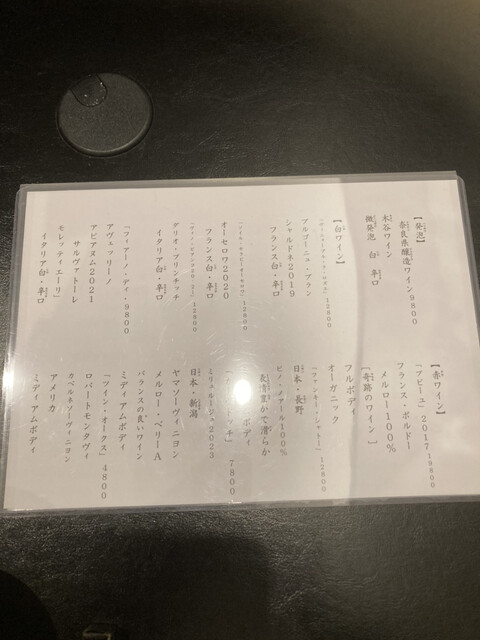 【発泡】
奈良県醸造ワイン9800
木谷ワイン
微発泡 白 辛口
【白ワイン】
12800
ブルゴーニュ・ブラン
シャルドネ2019
フランス白・辛口
12800
オーセロワ2020
フランス白・辛口
12800
グリオ・プリンチッチ
イタリア白・辛口
「フィアーノ・ディ・9800
アヴェッリーノ
アピアヌム2021
サルヴァトーレ
モレッティエーリ」
イタリア白・辛口
【赤ワイン】
「プピーユ」2017 19800
フランス・ボルドー
メルロー100%
【奇跡のワイン】
フルボディ
オーガニック
12800
日本・長野
ピノ・ノワール100%
滑らか
ボディ
7800
2023
日本・新潟
ヤマソーヴィニヨン
メルロー・ベリーA
バランスの良いワイン
ミディアムボディ
「ツイン・オークス」4800
ロバートモンダヴィ
カベルネソーヴィニヨン
アメリカ
ミディアムボディ